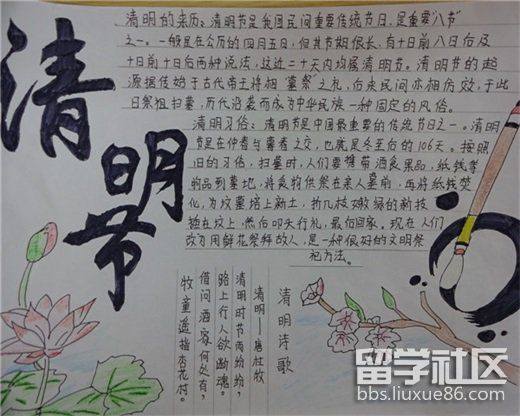 清明节
清明的来历：清明节是我国民间重要传统节日，是重要"八节"
之一。一般是在公历的四月五日，但其节期很长，有十日前八日后及
十日前十日后两种说法，这近二十天内均属清明节。清明节的起
源据传始于古代帝王将相"墓祭"之礼，后来民间亦相仿效，于此
日祭祖扫墓，历代沿袭而成为中华民族一种固定的风俗。
清明习俗：清明节是中国最重要的传统节日之一。清明
节是在仲春与暮春之交，也就是冬至后的106天。按照
旧的习俗，扫墓时，人们要携带酒食果品，纸钱等
的品到墓地，将食物供祭在亲人墓前，再将纸钱焚
化，为坟墓培上新土，折几枝嫩绿的新枝
插在坟上，然后叩头行礼，最后回家。现在人们
改为用鲜花祭拜故人，是一种很好的文明祭
祀方法。
清明诗歌
清明——唐杜牧
清明时节雨纷纷，
路上行人欲断魂。
借问酒家何处有，
牧童遥指杏花村。
留学社区
bbs.liuxue86.com